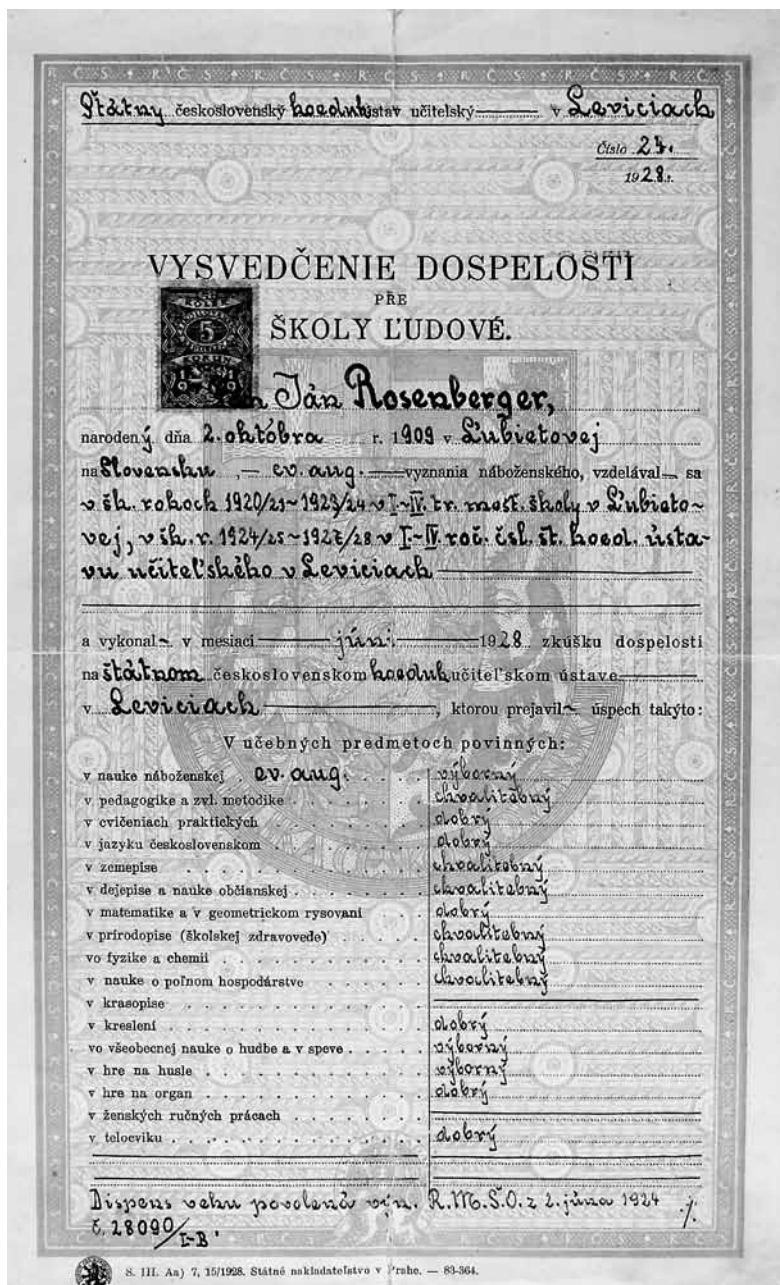 Štátny československý koeduk. ústav učiteľský v Leviciach
Číslo 24.
1928.
VYSVEDČENIE DOSPELOSTI
PRE
ŠKOLY ĽUDOVÉ.
KOLEK
5
KORUN
1919
Ján Rosenberger,
narodený dňa 2. októbra r. 1909 v Ľubietovej
na Slovensku, ev. aug. vyznania náboženského, vzdelával sa
v šk. rokoch 1920/21~1923/24 v I.~IV. tr. mešť. školy v Ľubieto-
vej, v šk. r. 1924/25~1927/28 v I.~IV. roč. čsl. št. koed. ústa-
vu učiteľského v Leviciach
a vykonal v mesiaci júni 1928 zkúšku dospelosti
na štátnom československom koeduk. učiteľskom ústave
v Leviciach, ktorou prejavil úspech takýto:
V učebných predmetoch povinných:
v nauke náboženskej ev. aug. výborný
v pedagogike a zvl. metodike chvalitebný
v cvičeniach praktických dobrý
v jazyku československom dobrý
v zemepise chvalitebný
v dejepise a nauke občianskej chvalitebný
v matematike a v geometrickom rysovaní dobrý
v prírodopise (školskej zdravovede) chvalitebný
vo fyzike a chemii chvalitebný
v nauke o poľnom hospodárstve chvalitebný
v krasopise
v kreslení dobrý
vo všeobecnej nauke o hudbe a v speve výborný
v hre na husle výborný
v hre na organ dobrý
v ženských ručných prácach
v telocviku dobrý
Dispens veku povolená výn. R.M.Š.O. z 2. júna 1924
č. 28090/I-B.
S. III. Aa) 7, 15/1928. Státné nakladateľstvo v Prahe. — 83-364.